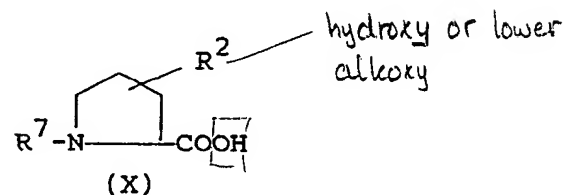 hydroxy or lower
R²
alkoxy
R⁷-N
COOH
(X)